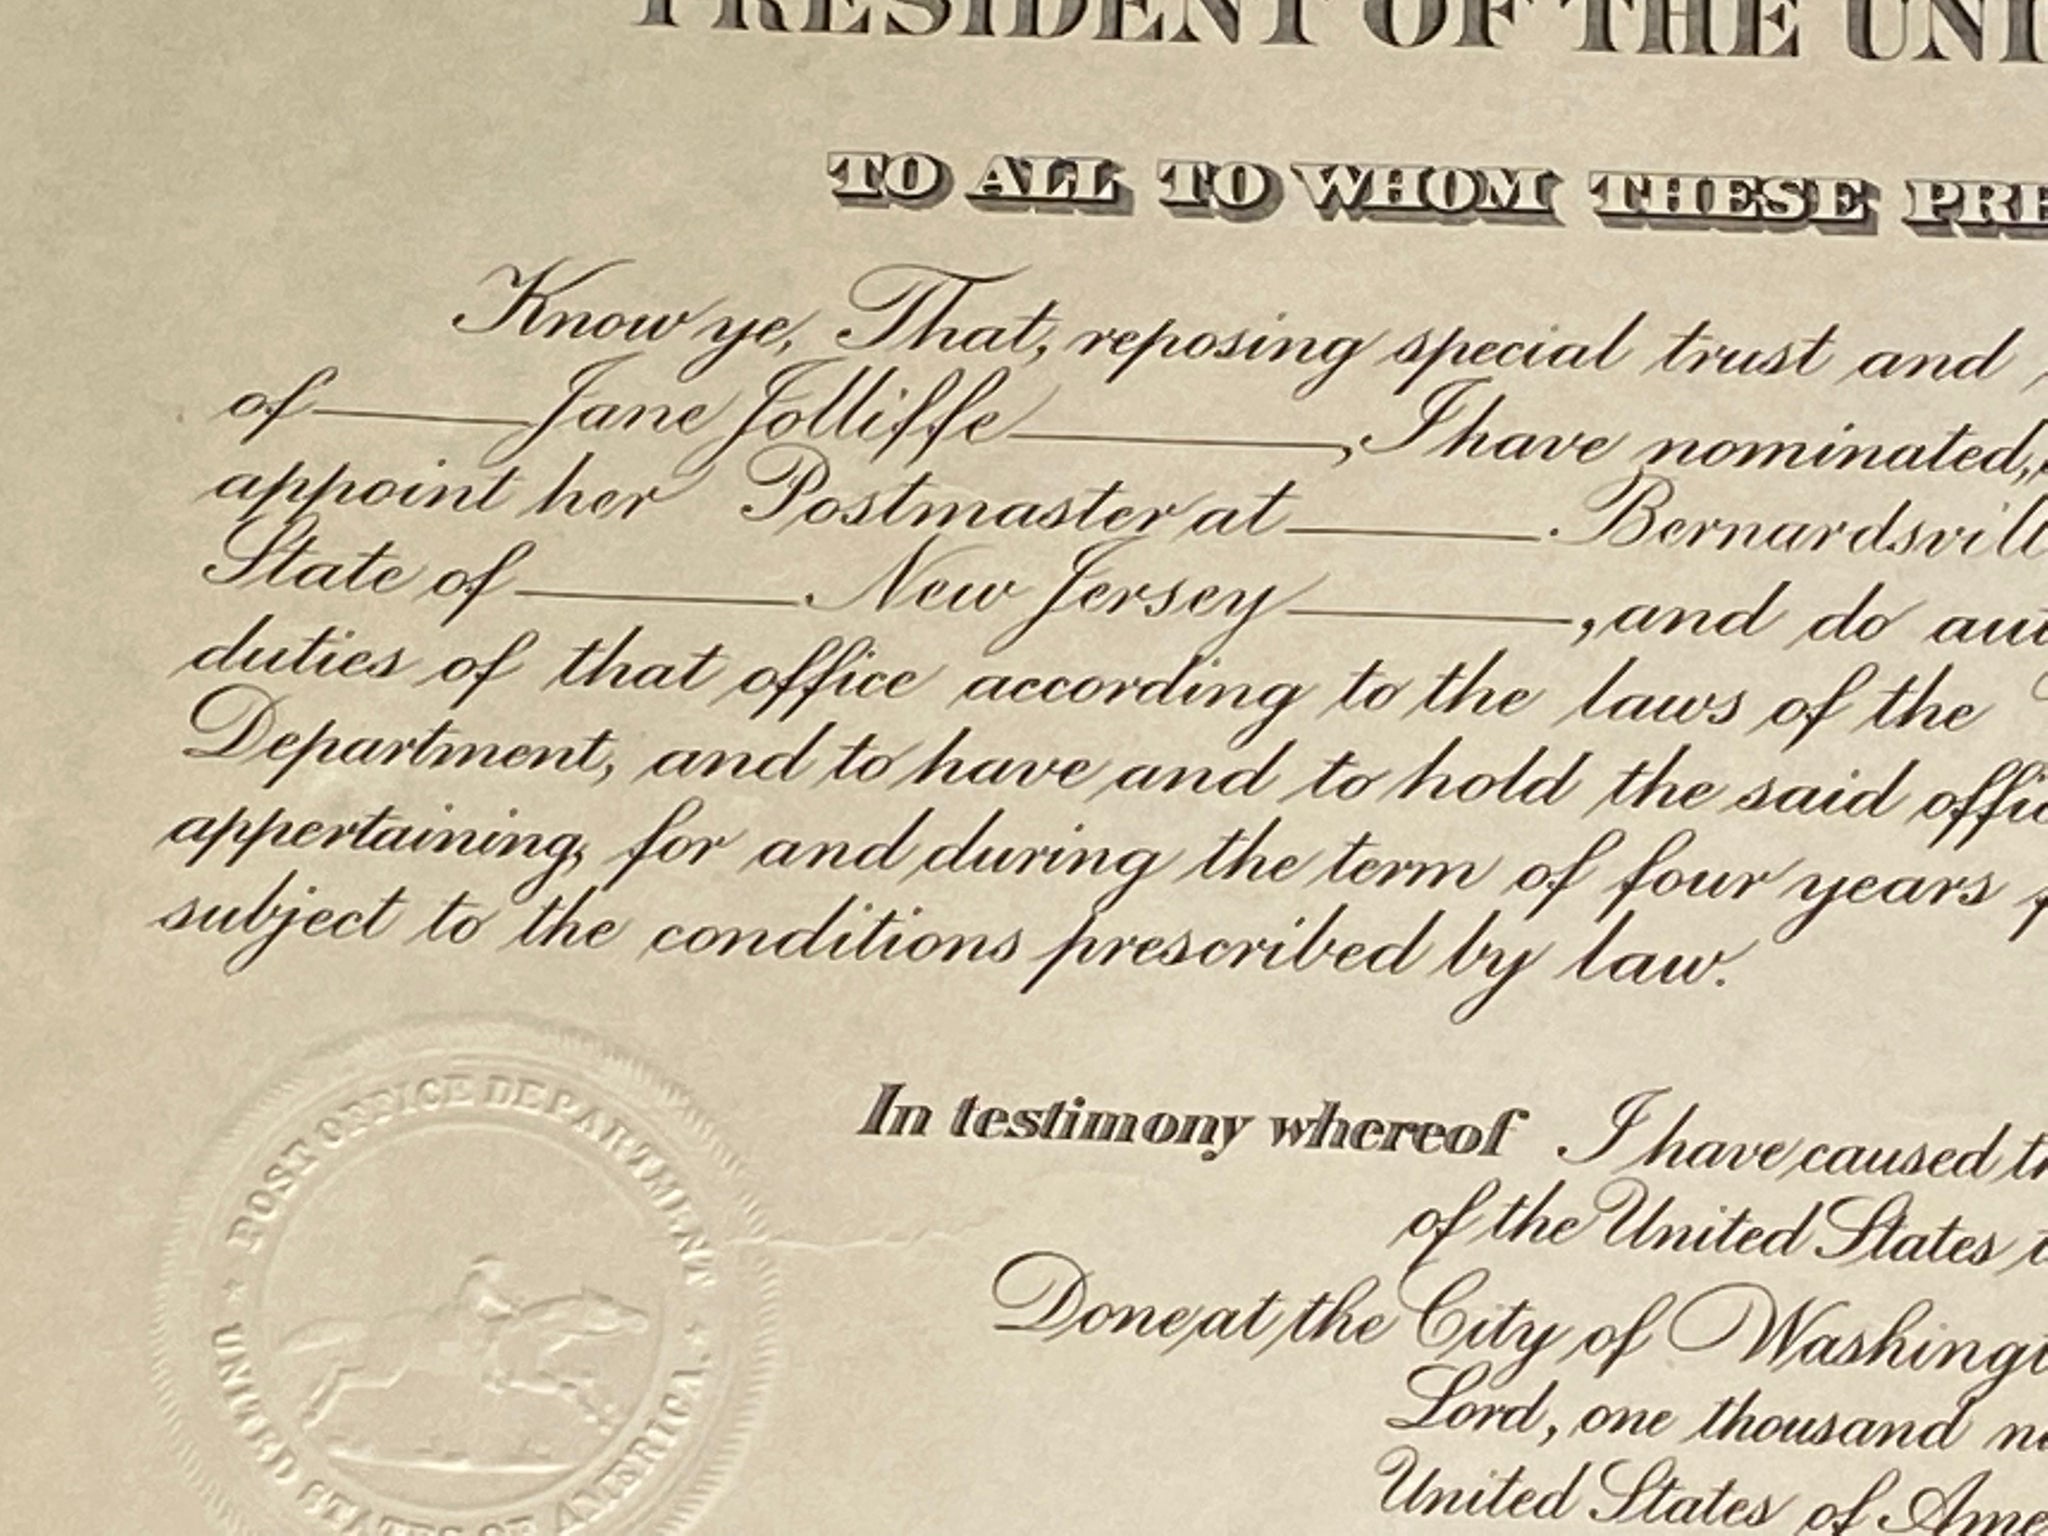 PRESIDENT OF THE UNI
TO ALL TO WHOM THESE PRE
Know ye, That, reposing special trust and
of Jane Jolliffe, I have nominated,
appoint her Postmaster at Bernardsvill
State of New Jersey, and do aut
duties of that office according to the laws of the
Department, and to have and to hold the said offic
appertaining, for and during the term of four years
subject to the conditions prescribed by law.
POST OFFICE DEPARTMENT
UNITED STATES OF AMERICA.
In testimony whereof I have caused th
of the United States t
Done at the City of Washingt
Lord, one thousand n
United States of Ame